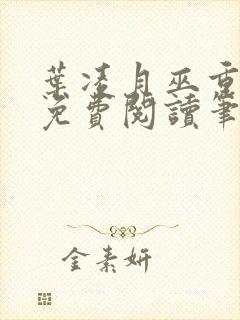 葉凌月巫重
免費閱讀筆
金素妍